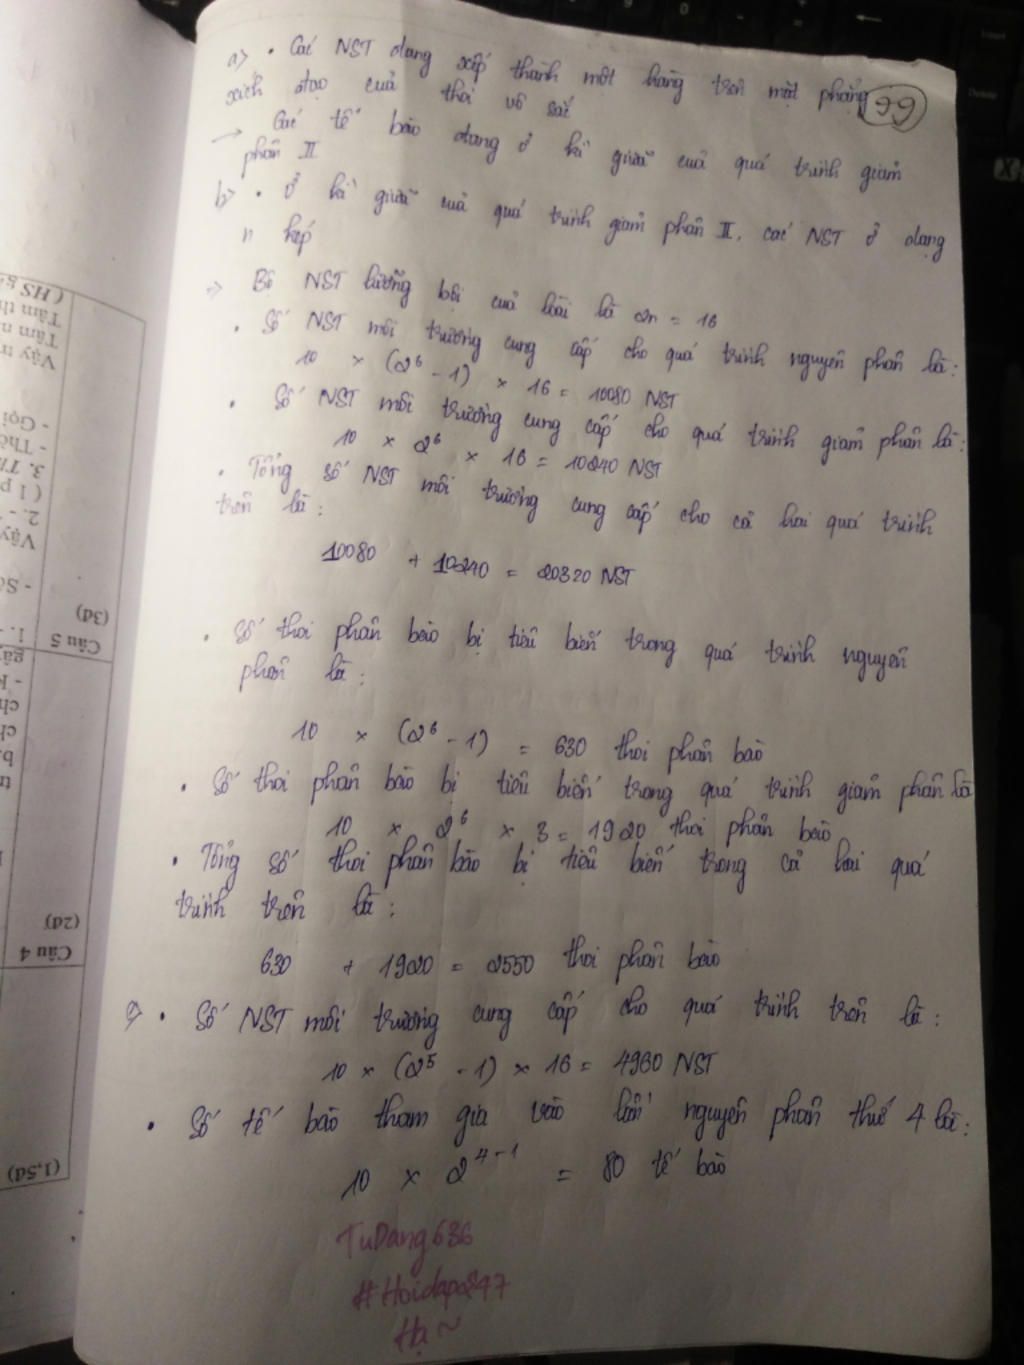 a) • Các NST đang xếp thành một hàng trên mặt phẳng 99
xích đạo của thoi vô sắc
→ Các tế bào đang ở kì giữa của quá trình giảm
phân II
b) • Ở kì giữa của quá trình giảm phân II, các NST ở dạng
n kép
=> Bộ NST lưỡng bội của loài là 2n = 16
• Số NST môi trường cung cấp cho quá trình nguyên phân là:
10 × (2^6 - 1) × 16 = 10080 NST
• Số NST môi trường cung cấp cho quá trình giảm phân là:
10 × 2^6 × 16 = 10240 NST
• Tổng số NST môi trường cung cấp cho cả hai quá trình
trên là:
10080 + 10240 = 20320 NST
• Số thoi phân bào bị tiêu biến trong quá trình nguyên
phân là:
10 × (2^6 - 1) = 630 thoi phân bào
• Số thoi phân bào bị tiêu biến trong quá trình giảm phân là
10 × 2^6 × 3 = 1920 thoi phân bào
• Tổng số thoi phân bào bị tiêu biến trong cả hai quá
trình trên là:
630 + 1920 = 2550 thoi phân bào
c) • Số NST môi trường cung cấp cho quá trình trên là:
10 × (2^5 - 1) × 16 = 4960 NST
• Số tế bào tham gia vào lần nguyên phân thứ 4 là:
10 × 2^4-1 = 80 tế bào
TuDang636
#Hoidap247
Hạ~
(HS g
Tâm th
Tâm n
Vậy tr
- Gọi
- Thờ
3. T
(1 p
2. -
Vậy
- Số
(3đ)
Câu 5
1. -
(2đ)
Câu 4
(1,5đ)